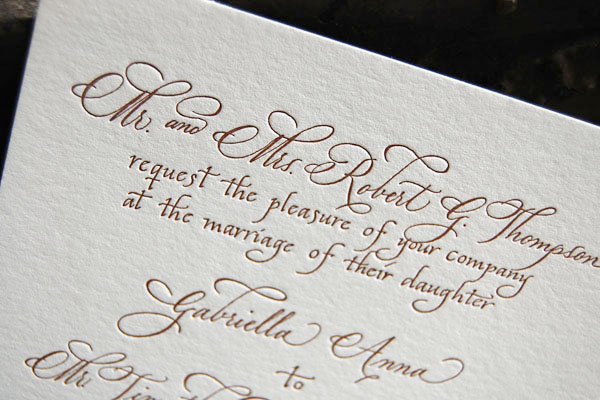 Mr. and Mrs. Robert G. Thompson
request the pleasure of your company
at the marriage of their daughter
Gabriella Anna
to
Mr.